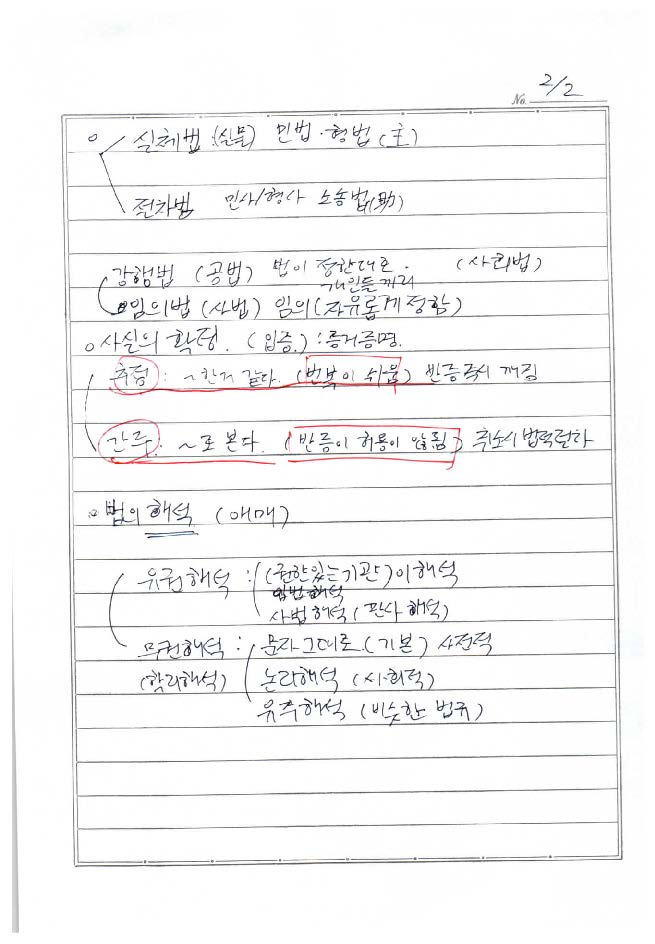 No. 2/2
실체법 :(실물) 민법·형법(主)
절차법 민사/형사 소송법(助)
강행법 (공법) 법이 정한대로. (사회법)
개인들끼리
임의법 (사법) 임의(자유롭게 정함)
사실의 확정. (입증.) : 증거증명.
추정 : ~한거 같다. (번복이 쉬움) 반증즉시 깨짐
간주 : ~로 본다. (반증이 허용이 않됨)
법의 해석 (애매)
유권해석 : (권한있는기관)이 해석
입법해석
사법해석 (판사 해석)
무권해석 : 문자그대로.(기본) 사전적
(학리해석) 논리해석 (사회적)
유추해석 (비슷한 법규)